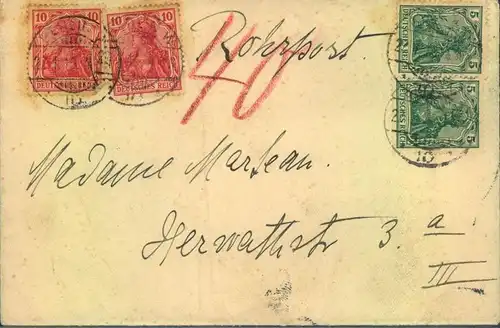 10 10 5
DEUTSCHES REICH DEUTSCHES REICH
Rohrpost.
40
5
DEUTSCHES REICH
Madame Marseau.
Herwathstr 3. a
III